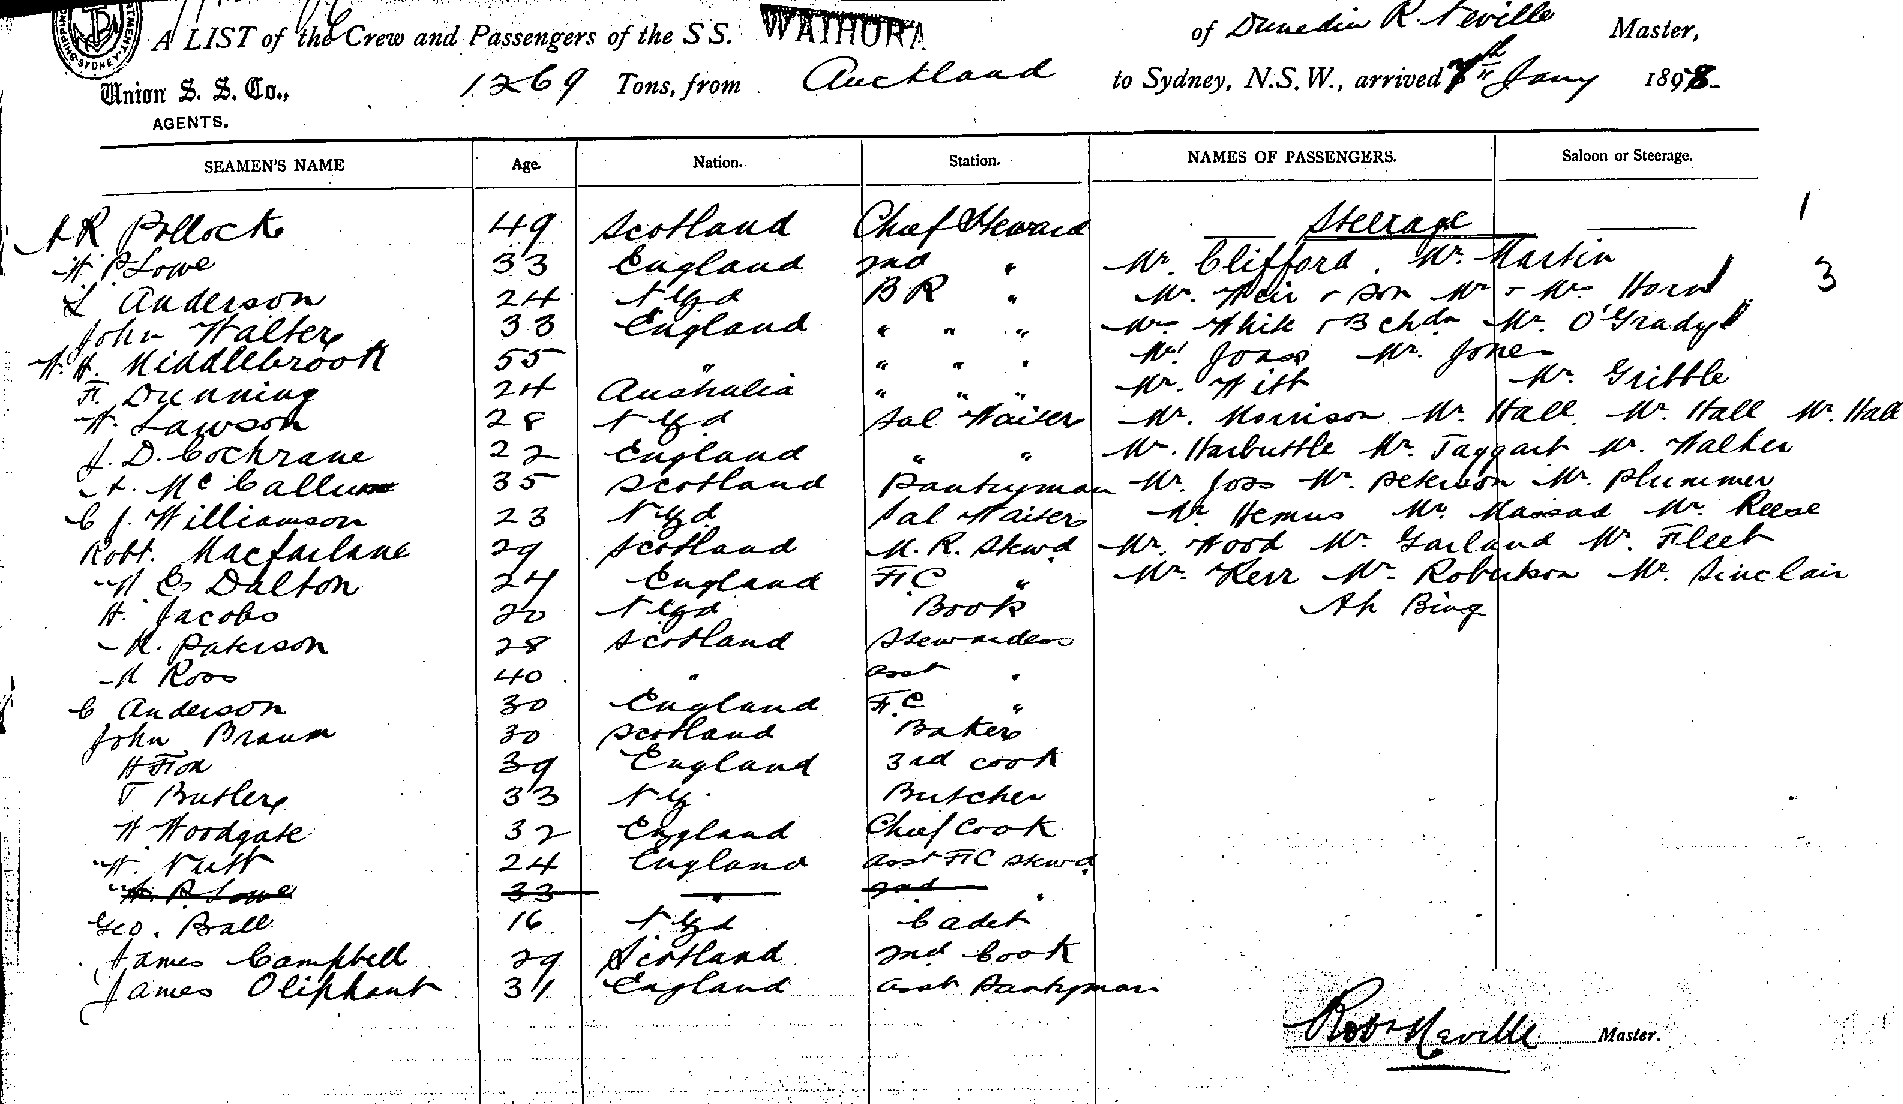 A LIST of the Crew and Passengers of the SS. WAIHORA of Dunedin R. Neville Master,
Union S. S. Co., 1269 Tons, from Auckland to Sydney, N.S.W., arrived 7th Jany 1898
AGENTS.
SEAMEN'S NAME Age. Nation. Station. NAMES OF PASSENGERS. Saloon or Steerage.
A R Pollock 49 Scotland Chief Steward Steerage 1
H. P Lowe 33 England 2nd " Mr. Clifford. Mr. Martin 3
L Anderson 24 N Zd B R " Mr. Weir & Son Mr & Mrs Horn
John Walters 33 England " " " Mrs White & 3 Chdn Mr. O'Grady
W. H. Middlebrook 55 " " " " Mr Joass Mr. Jones
F. Dunning 24 Australia " " " Mr. Witt Mr. Gribble
W. Lawson 28 N Zd Sal Waiter Mr. Morrison Mr. Hall. Mr. Hall Mr. Hall
J. D. Cochrane 22 England " " Mr. Harbuttle Mr. Taggart Mr. Walker
A. McCallum 35 Scotland Pantryman Mr. Joss Mr. Peterson Mr. Plummer
C J. Williamson 23 N Zd. Sal Waiter Mr Hemus Mr. Massad Mr. Reese
Robt. Macfarlane 29 Scotland M. R. Stewd Mr. Wood Mr. Garland Mr. Fleet
W E Dalton 24 England F. C " Mr. Kerr Mr. Robertson Mr. Sinclair
H. Jacobs 20 N Zd Book Ah Bing
M. Paterson 28 Scotland Stewardess
M Ross 40 " asst "
C Anderson 30 England F. C "
John Braum 30 Scotland Baker
H Fox 39 England 3rd cook
T Butler 33 N Z. Butcher
W Woodgate 32 England Chief Cook
W. Nutt 24 England asst F C Stewd
H. P. Lowe 33 " 2nd "
Geo. Ball 16 N Zd Cadet
James Campbell 29 Scotland 2nd Cook
James Oliphant 31 England asst Pantryman
Robt Neville Master.